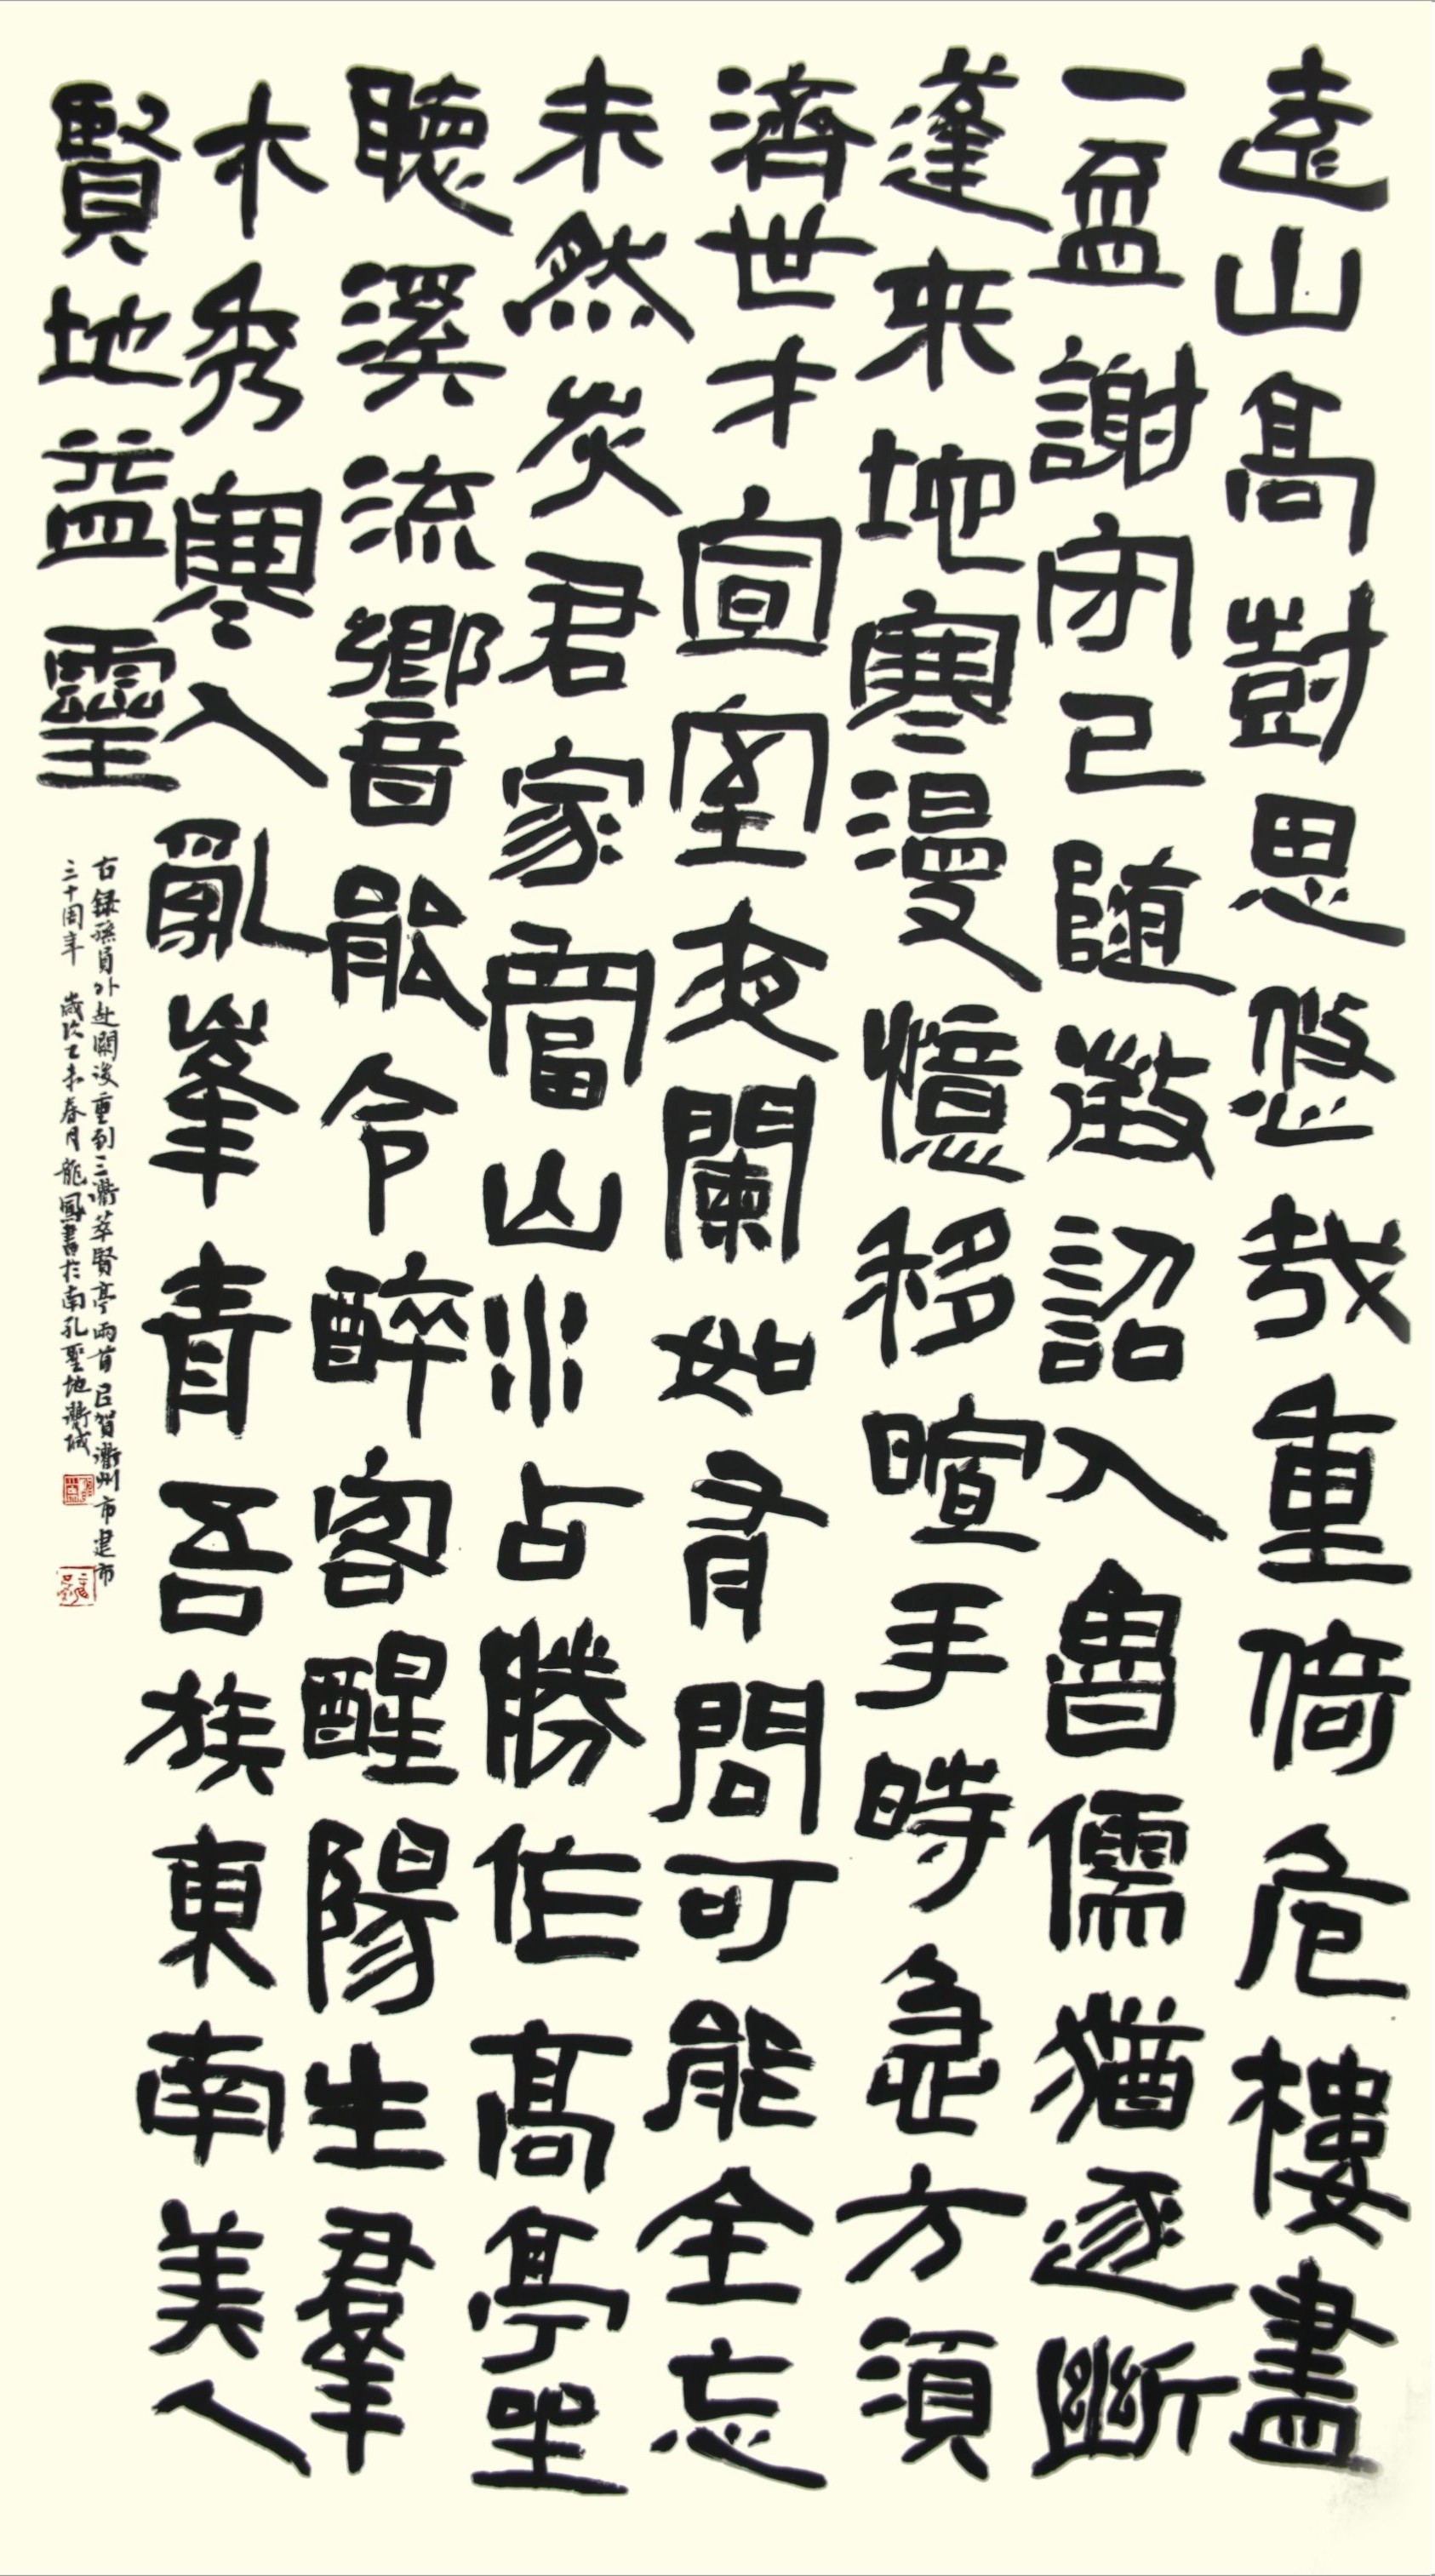 遠山高對思悠哉重倚危樓盡
一盃謝守已隨徵詔入魯儒猶逐斷
蓬來地寒漫憶移暄手時急方須
濟世才宣室夜闌如有問可能全忘
未然灰君家富山水占勝作高亭坐
聽溪流響能令醉客醒陽生群
木秀寒入亂峯青吾族東南美人
賢地益靈
右錄孫員外赴闕後重到三衢 萃賢亭兩首 㠯賀衢州市建市
三十周年 歲次乙未春月 龍鳳書於南孔聖地衢城